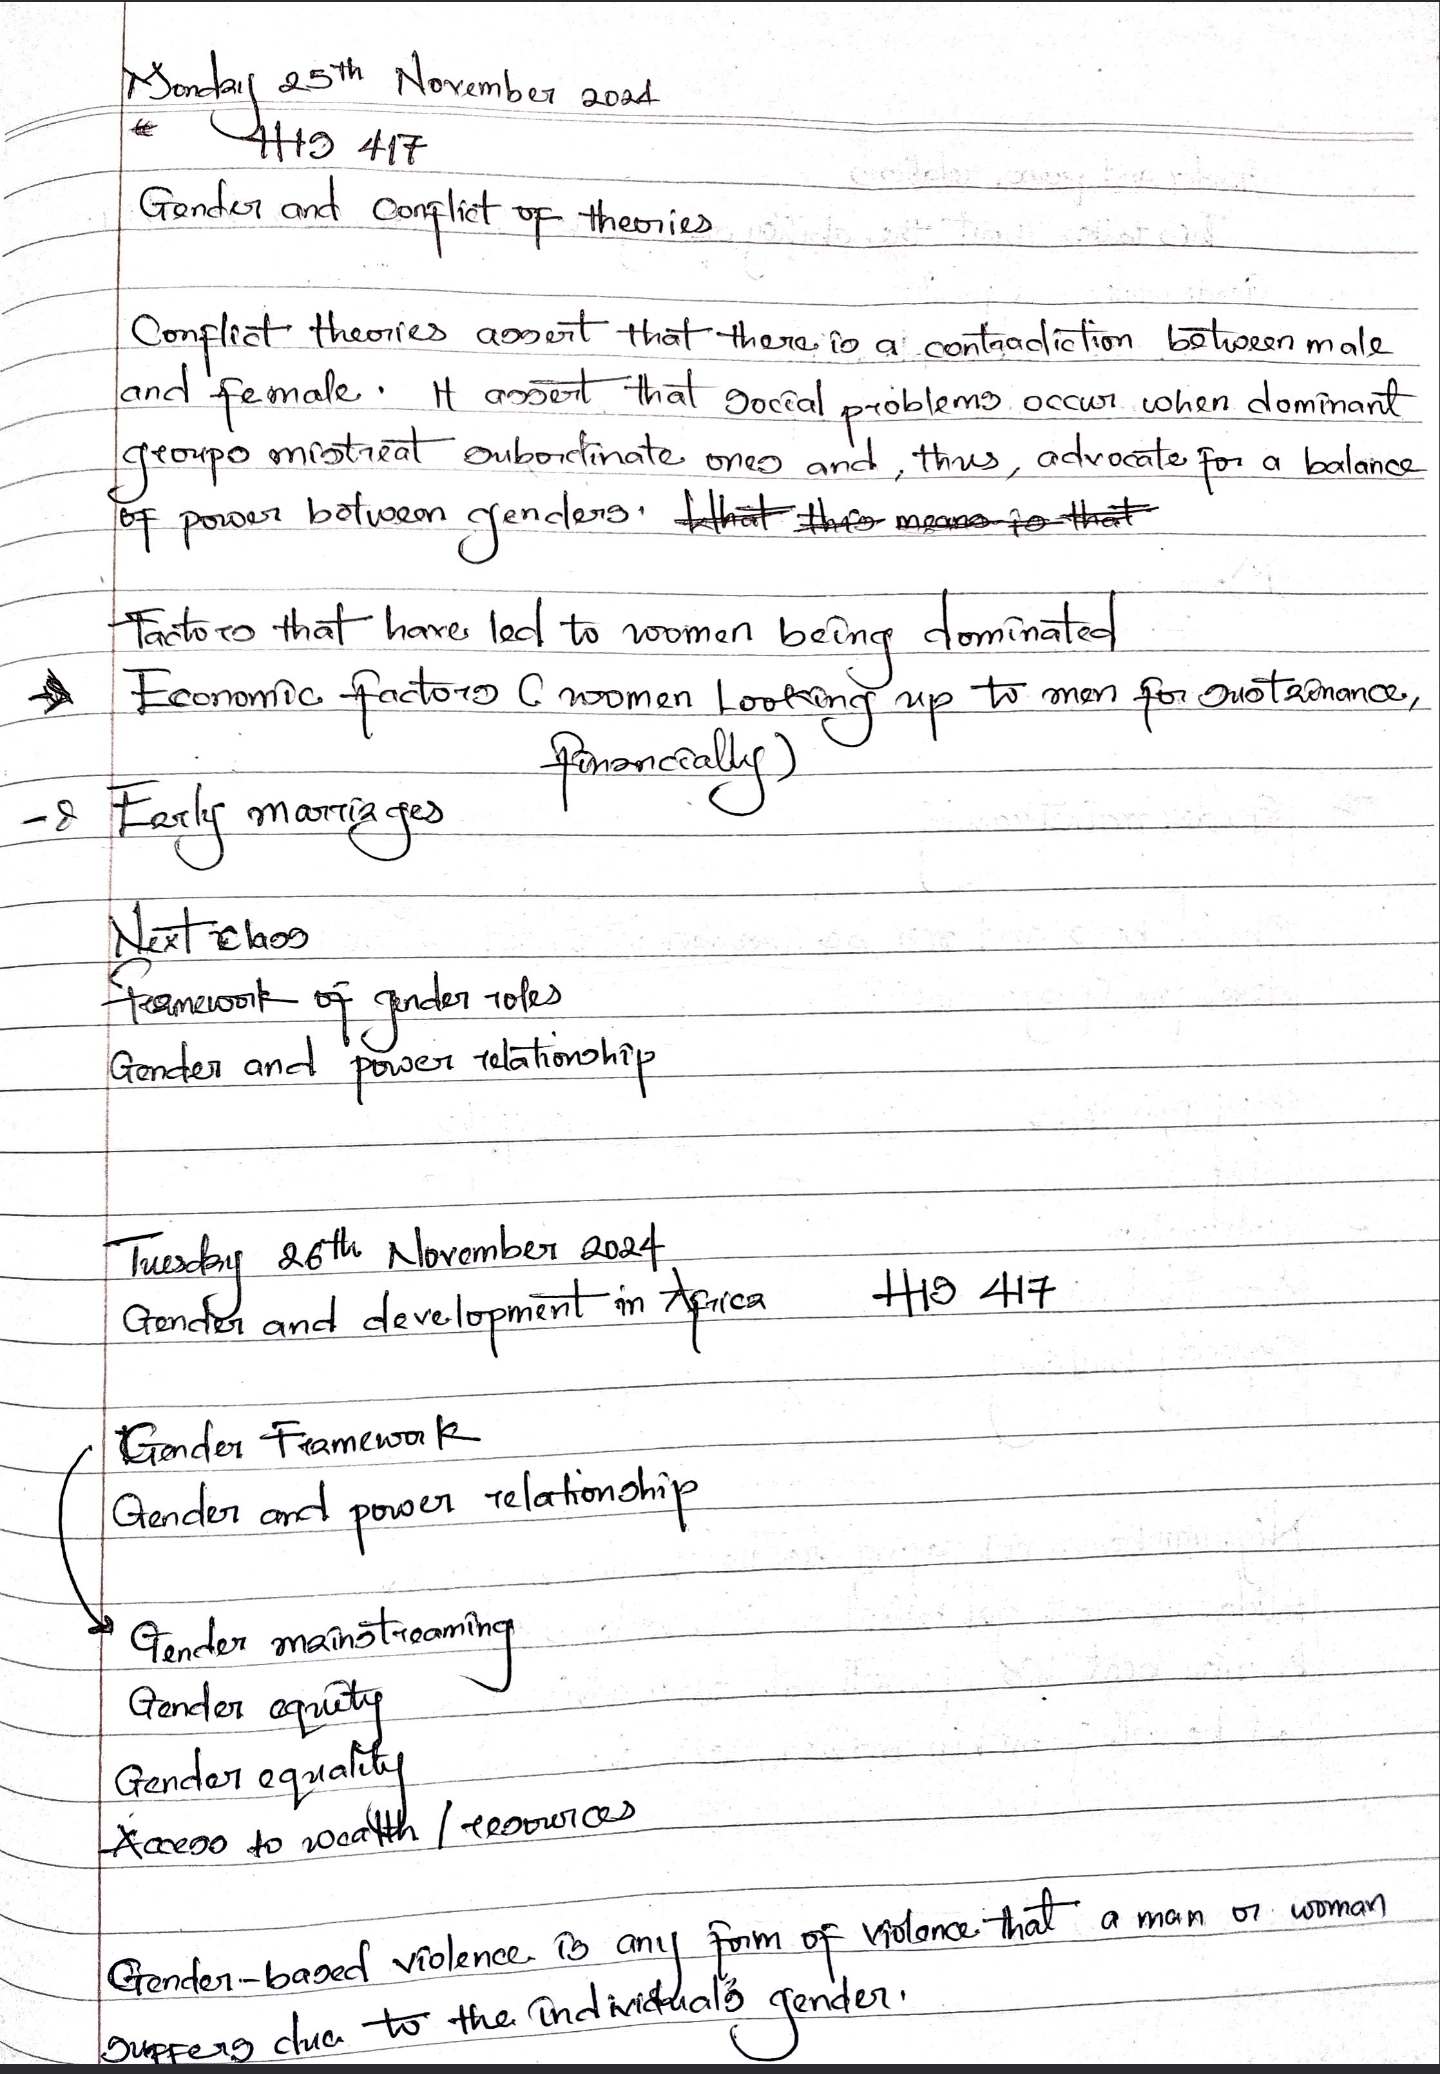 Monday 25th November 2024
HIS 417
Gender and Conflict of theories
Conflict theories assert that there is a contradiction between male
and female. It assert that social problems occur when dominant
groups mistreat subordinate ones and, thus, advocate for a balance
of power between genders. What this means is that
Factors that have led to women being dominated
→ Economic factors (women Looking up to men for sustainance,
financially)
Early marriages
Next class
Framework of gender roles
Gender and power relationship
Tuesday 26th November 2024
Gender and development in Africa HIS 417
Gender Framework
Gender and power relationship
Gender mainstreaming
Gender equity
Gender equality
Access to wealth / resources
Gender-based violence is any form of violence that a man or woman
suffers due to the individual's gender.